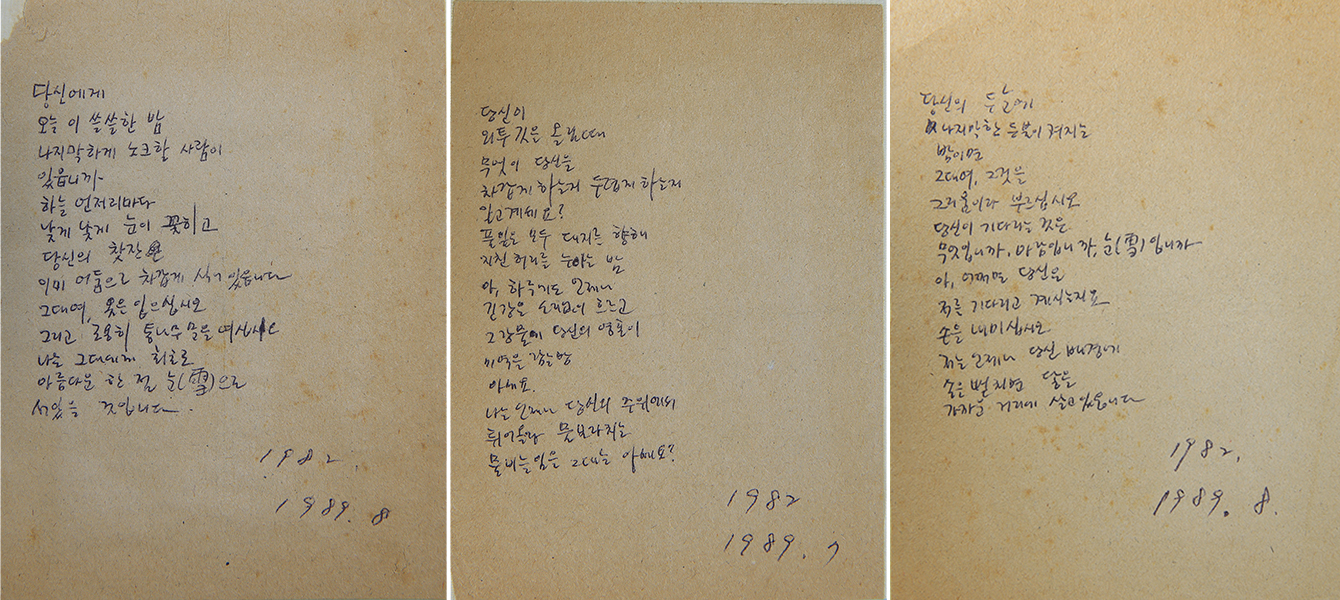 당신에게
오늘 이 쓸쓸한 밤
나지막하게 노크할 사람이
있읍니까
하늘 언저리마다
낮게 낮게 눈이 꽂히고
당신의 찻잔은
이미 어둠으로 차갑게 식어 있읍니다
그대여, 옷을 입으십시오
그리고 조용히 통나무 문을 여십시오
나는 그대에게 최초로
아름다운 한 점 눈(雪)으로
서있을 것입니다.
1982.
1989. 8
당신이
외투 깃을 올릴 때
무엇이 당신을
차갑게 하는지 두렵게 하는지
알고계세요?
풀잎은 모두 대지를 향해
지친 허리를 눕히는 밤
아, 하루키도 언제나
긴 강은 소리없이 흐르고
그 강물에 당신의 영혼이
미역을 감는 밤
아세요.
나는 언제나 당신의 주위에서
튀어올라 물보라치는
물비늘임을 그대는 아세요?
1982
1989. 7
당신의 두 눈에
나지막한 등불이 켜지는
밤이면
그대여, 그것을
그리움이라 부르십시오
당신이 기다리는 것은
무엇입니까, 바람입니까, 눈(雪)입니까
아, 어쩌면 당신은
저를 기다리고 계시는지요
손을 내미십시오
저는 언제나 당신 배경에
손을 뻗치면 닿을
가까운 거리에 살고 있읍니다
1982.
1989. 8.